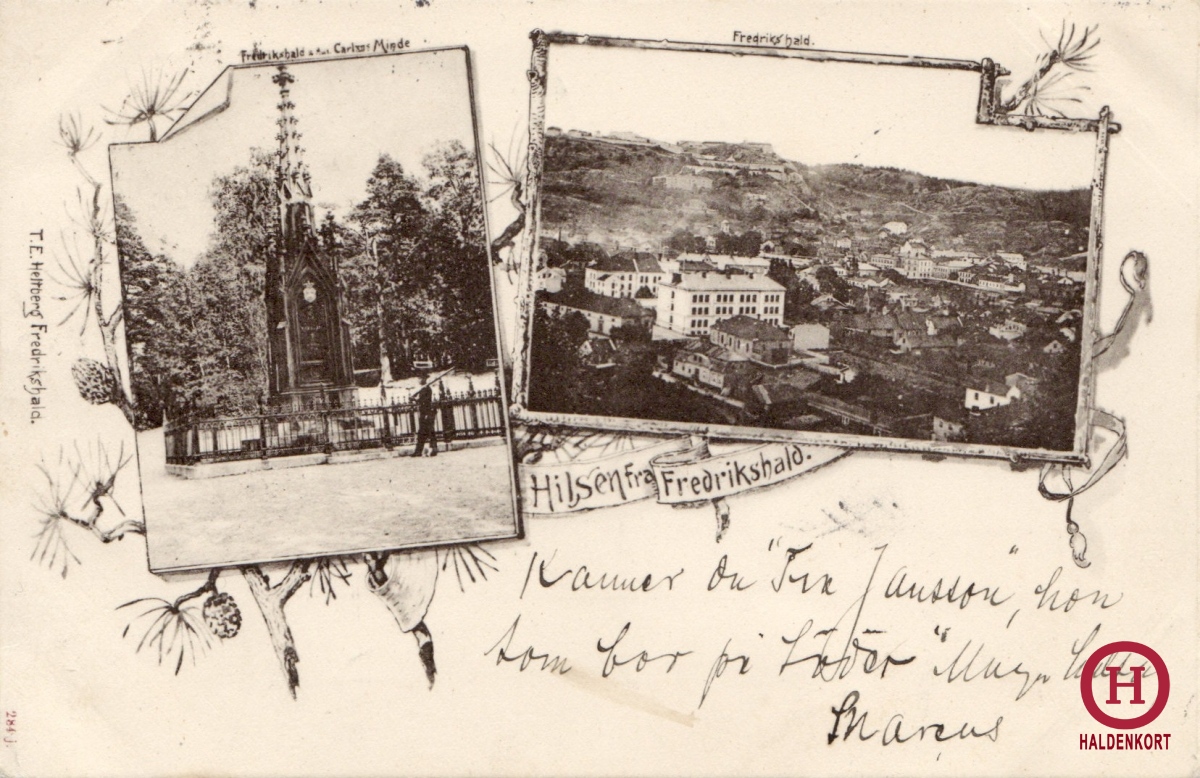 Fredrikshald Carls Minde
Fredrikshald.
Hilsen fra Fredrikshald.
T. E. Heltberg Fredrikshald.
Känner du "Fru Jansson", hon
som bor på Söder
Marcus
284 j.
H
HALDENKORT